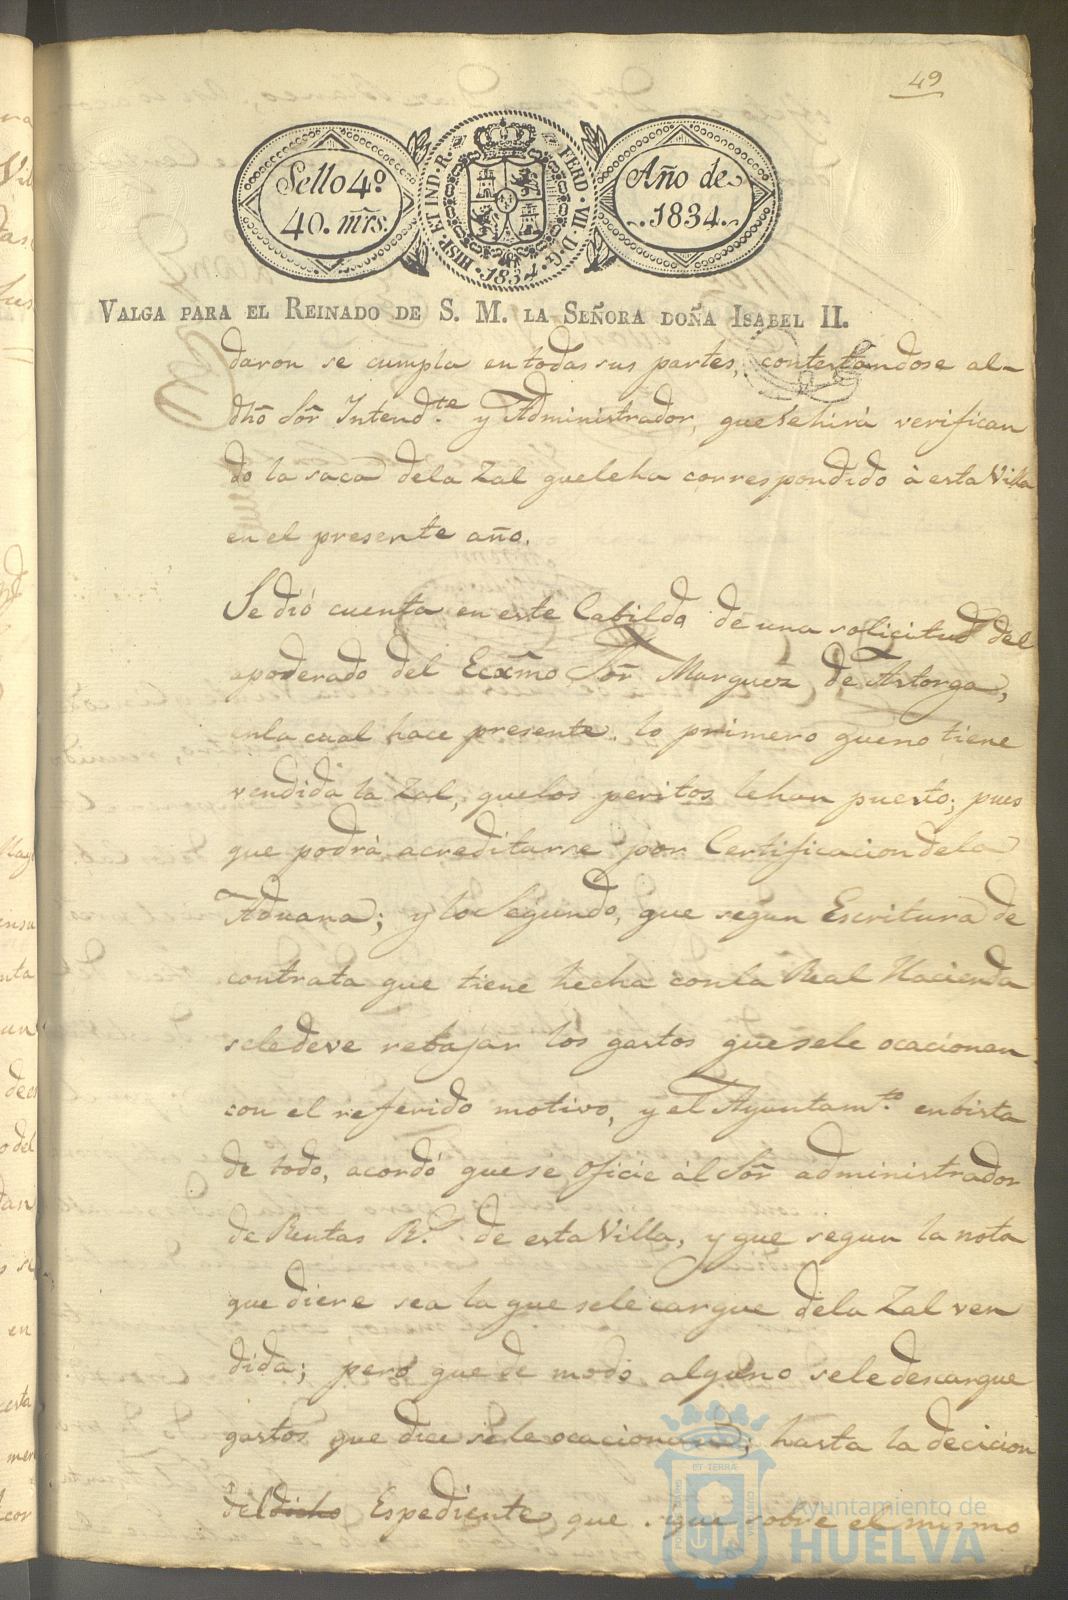 49
Sello 4º
40. mrs.
HISP. ET IND. R. FERD. VII. D. G. 1834
Año de
1834.
VALGA PARA EL REINADO DE S. M. LA SEÑORA DOÑA ISABEL II.
daron se cumpla en todas sus partes, contestandose al
dhõ Sõr Intendte. y Administrador, que se hirá verifican
do la saca dela Zal quele ha correspondido á esta Villa
en el presente año.
Se dió cuenta en este Cabildo de una solicitud del
apoderado del Ecxm̃o Sõr Marquez de Astorga,
enla cual hace presente, lo primero queno tiene
vendida la Zal, quelos peritos lehan puesto; pues
que podrá acreditarse por Certificacion dela
Aduana; y lo Segundo, que segun Escritura de
contrata que tiene hecha conla Real Hacienda
sele deve rebajar los gastos quesele ocacionan
con el referido motivo, y el Ayuntamto. en bista
de todo, acordó quese oficie al Sõr administrador
de Rentas Rs. de esta Villa, y que segun la nota
que diere sea la que sele cargue dela Zal ven
dida; pero que de modo alguno sele descargue
gastos que dice sele ocacionan; hasta la decicion
del dicho Espediente que sigue sobre el mismo
Ayuntamiento de
HUELVA